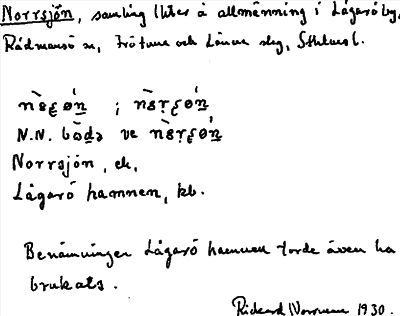 Norrsjön, samling lkter å allmänning i Lågarö by,
Rådmansö sn, Frötuna och Länna slg, Sthlms l.
N.N. ve
Norrsjön, ek,
Lågarö hamnen, kb.
Benämningen Lågarö hamnen torde även ha
brukats.
Rickard Norman 1930.